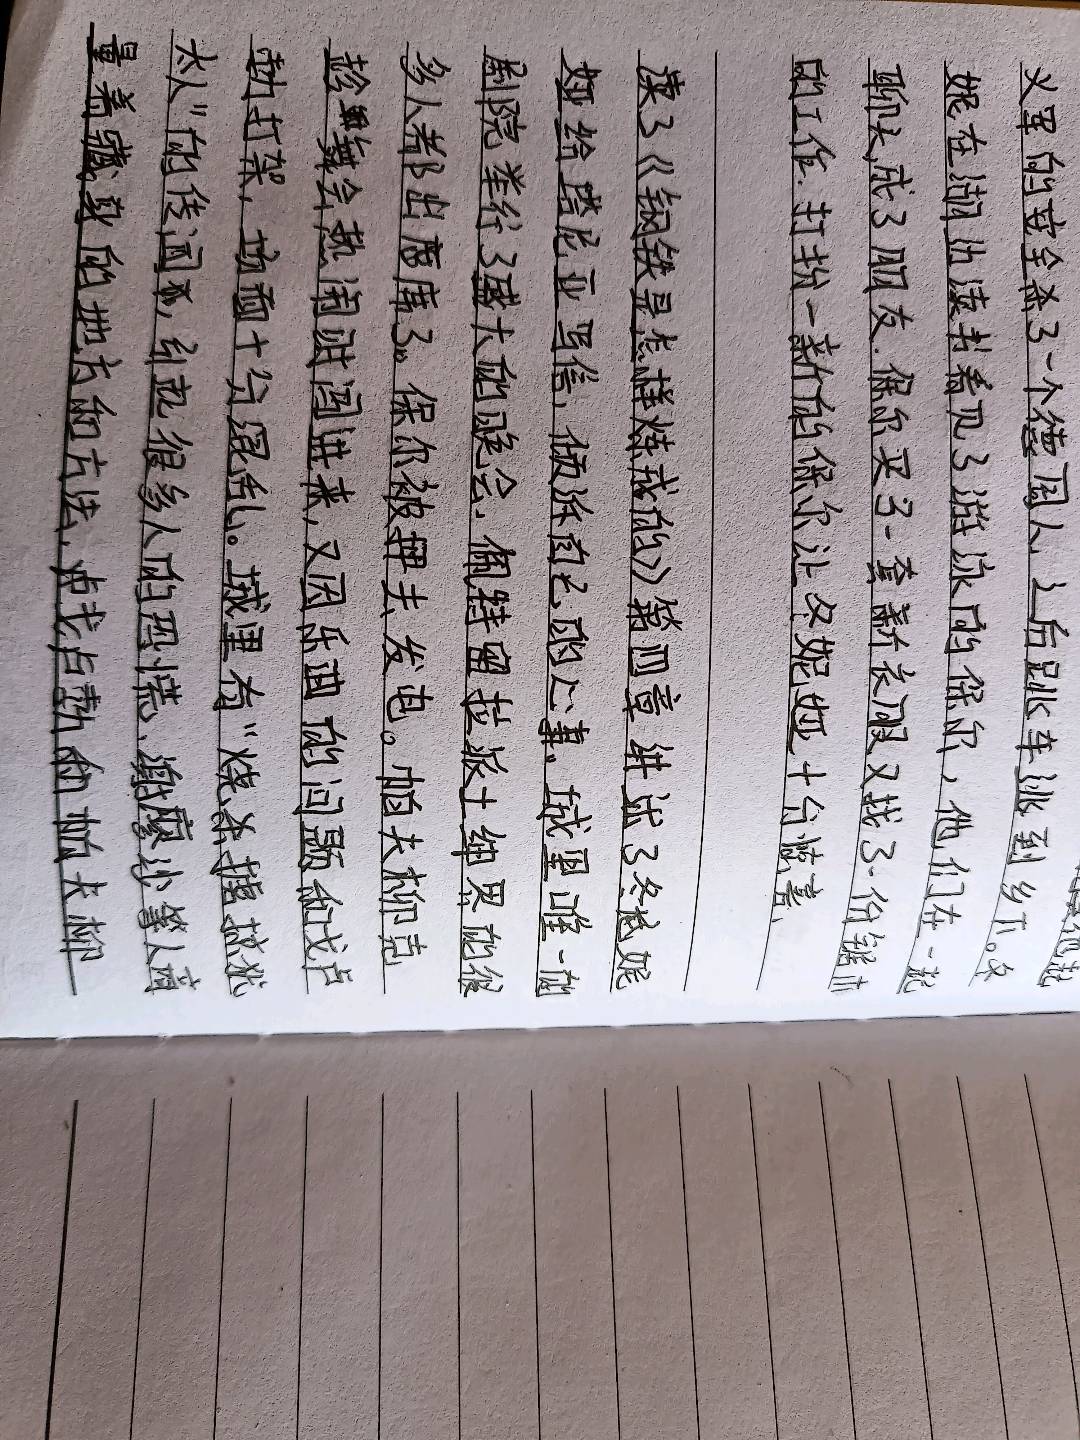 义军的安全杀了一个德国人之后跳车逃到乡下。冬
妮在湖边读书看见了游泳的保尔，他们在一起
聊天，成了朋友.保尔买了一套新衣服又找了一份锯木
的工作.打扮一新的保尔让冬妮娅十台惊喜、
读了《钢铁是怎样炼成的》第四章讲述了冬妮
娅给塔尼亚写信，倾诉自己的心事。城里唯一的
剧院举行了盛大的晚会，佩特留拉派士绅界的很
多人都出席了。保尔被押去发电。帕夫柳克
趁舞会热闹时闯进来，又因乐曲的问题和戈卢
勃打架，场面十分混乱。城里有"烧杀掳掠犹
太人"的传闻，引起很多人的恐慌、谢廖沙等人商
量着藏身的地方和方法，戈卢勃和帕夫柳